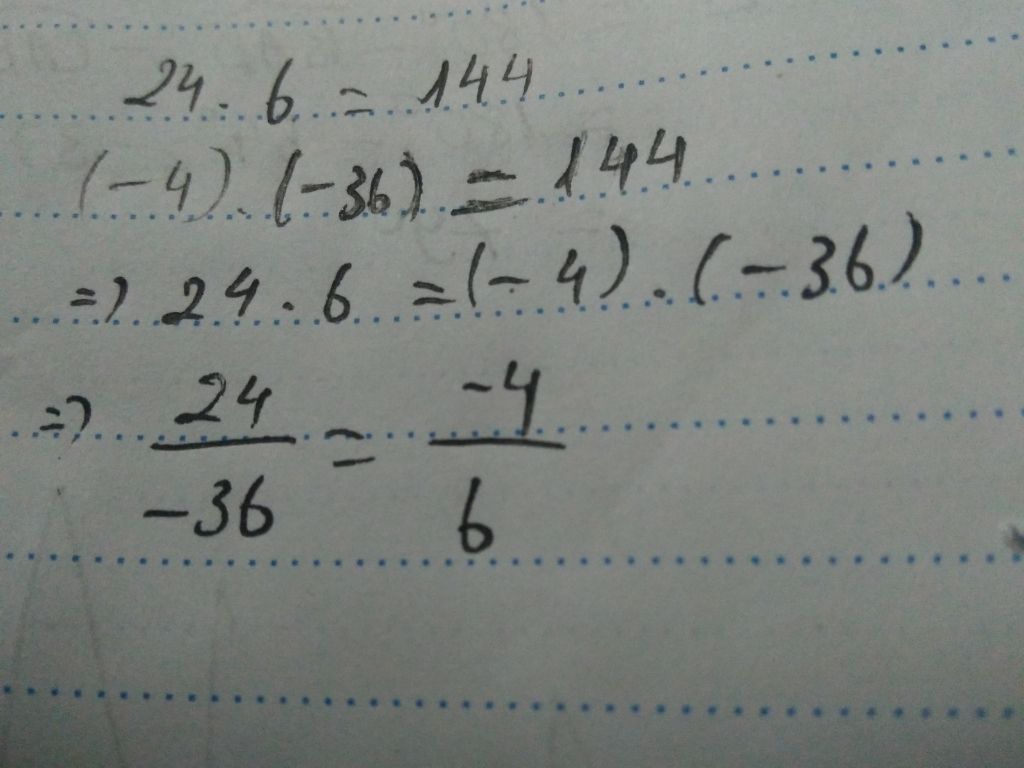 24 . 6 = 144
(-4) . (-36) = 144
=> 24 . 6 = (-4) . (-36)
=> 24/-36 = -4/6